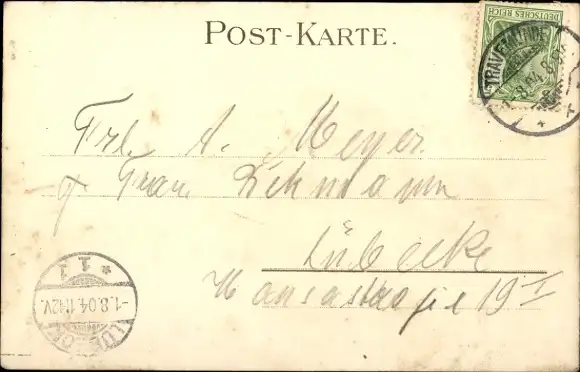 POST-KARTE.
DEUTSCHES REICH
TRAVEMÜNDE
1.8.04.8-9V.
Frl. A. Meyer
Frau Lehmann
Lübeck
Hansastraße 19 I
* 1 1
-1.8.04.11-12V.
LÜBECK